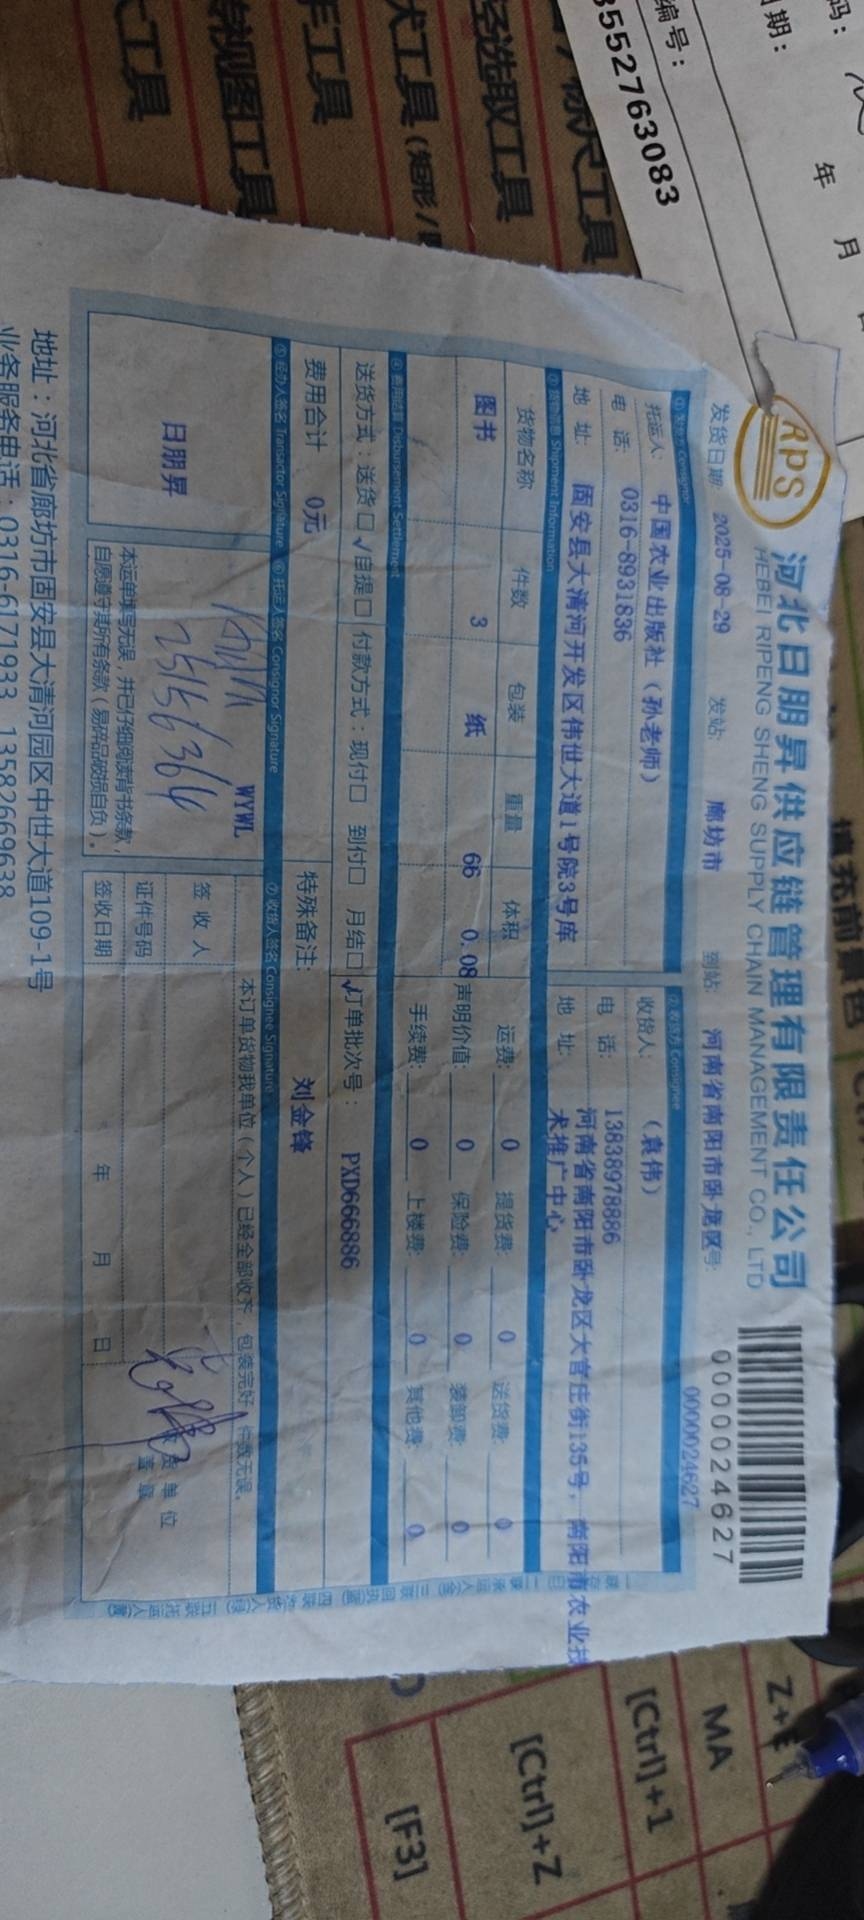 RPS
河北日朋昇供应链管理有限责任公司
HEBEI RIPENG SHENG SUPPLY CHAIN MANAGEMENT CO., LTD
0000024627
0000024627
发货日期: 2025-08-29 发站: 廊坊市 到站: 河南省南阳市卧龙区 号:
① 发货方 Consignor ② 收货方 Consignee
托运人: 中国农业出版社（孙老师） 收货人: （袁伟）
电 话: 0316-8931836 电 话: 13838978886
地 址: 固安县大清河开发区伟世大道1号院3号库 地 址: 河南省南阳市卧龙区大官庄街135号, 南阳市农业技
术推广中心
③ 货物信息 Shipment Information
货物名称 件数 包装 重量 体积 运费: 0 提货费: 0 送货费: 0
图书 3 纸 66 0.08 声明价值: 0 保险费: 0 装卸费: 0
手续费: 0 上楼费: 0 其他费: 0
④ 费用结算 Disbursement Settlement
送货方式：送货□ √自提□ 付款方式：现付□ 到付□ 月结□ √ 订单批次号： PXD666886
费用合计 0元 特殊备注: 刘金锋
⑤ 经办人签名 Transactor Signature ⑥ 托运人签名 Consignor Signature ⑦ 收货人签名 Consignee Signature
日朋昇
WYWL
本运单填写无误，并已仔细阅读背书条款，
自愿遵守其所有条款（易碎品破损自负）。
本订单货物我单位（个人）已经全部收齐，包装完好，件数无误。
签 收 人
证件号码
签收日期 年 月 日
收货单位
盖 章
地址：河北省廊坊市固安县大清河园区中世大道109-1号
业务服务电话：0316-6171933 13582669638
编号：
3552763083
年 月
期：
码：
标尺工具
径选取工具
工具（矩形/
手工具
视图工具
工具
填充前景色
Z+
MA
[Ctrl]+1
[Ctrl]+Z
[F3]